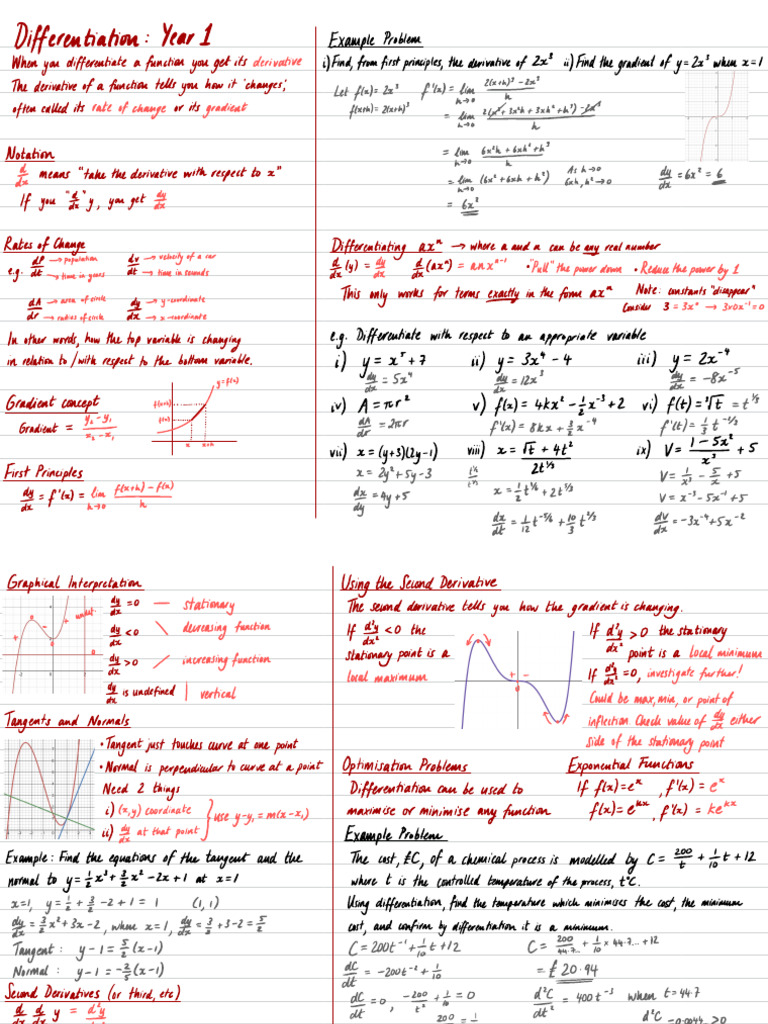 Differentiation: Year 1
When you differentiate a function you get its derivative
The derivative of a function tells you how it 'changes',
often called its rate of change or its gradient
Notation
d/dx means "take the derivative with respect to x"
If you "d/dx" y, you get dy/dx
Rates of Change
e.g. dP/dt → population → time in years
dv/dt → velocity of a car → time in seconds
dA/dr → area of circle → radius of circle
dy/dx → y-coordinate → x-coordinate
In other words, how the top variable is changing
in relation to/with respect to the bottom variable.
Gradient concept
Gradient = (y₂-y₁)/(x₂-x₁)
y=f(x)
f(x+h)
f(x)
x x+h
First Principles
dy/dx = f'(x) = lim h→0 (f(x+h)-f(x))/h
Example Problem
i) Find, from first principles, the derivative of 2x³ ii) Find the gradient of y=2x³ when x=1
Let f(x)=2x³ f'(x)= lim h→0 (2(x+h)³-2x³)/h
f(x+h)=2(x+h)³
= lim h→0 (2(x³+3x²h+3xh²+h³)-2x³)/h
= lim h→0 (6x²h+6xh²+h³)/h
= lim h→0 (6x²+6xh+h²) As h→0 6xh, h²→0
= 6x²
dy/dx = 6x² = 6
Differentiating axⁿ → where a and n can be any real number
d/dx (y) = dy/dx d/dx (axⁿ) = anxⁿ⁻¹ • "Pull" the power down • Reduce the power by 1
This only works for terms exactly in the form axⁿ Note: constants "disappear"
Consider 3 = 3x⁰ → 3x0x⁻¹=0
e.g. Differentiate with respect to an appropriate variable
i) y = x⁵+7 ii) y = 3x⁴-4 iii) y = 2x⁻⁴
dy/dx = 5x⁴ dy/dx = 12x³ dy/dx = -8x⁻⁵
iv) A = πr² v) f(x) = 4kx² - 1/2 x⁻³ + 2 vi) f(t) = ³√t = t^(1/3)
dA/dr = 2πr f'(x) = 8kx + 3/2 x⁻⁴ f'(t) = 1/3 t^(-2/3)
vii) x = (y+3)(2y-1) viii) x = (√t + 4t²)/(2t^(1/3)) ix) V = (1-5x²)/x³ + 5
x = 2y²+5y-3 x = 1/2 t^(1/6) + 2t^(5/3) V = 1/x³ - 5/x + 5
dx/dy = 4y+5 V = x⁻³-5x⁻¹+5
dx/dt = 1/12 t^(-5/6) + 10/3 t^(2/3) dV/dx = -3x⁻⁴+5x⁻²
Graphical Interpretation
dy/dx = 0 — stationary
dy/dx < 0 \ decreasing function
dy/dx > 0 / increasing function
dy/dx is undefined | vertical
Tangents and Normals
• Tangent just touches curve at one point
• Normal is perpendicular to curve at a point
Need 2 things
i) (x,y) coordinate
ii) dy/dx at that point } use y-y₁=m(x-x₁)
Example: Find the equations of the tangent and the
normal to y = 1/2 x³ + 3/2 x² - 2x + 1 at x=1
x=1, y = 1/2 + 3/2 - 2 + 1 = 1 (1,1)
dy/dx = 3/2 x² + 3x - 2, when x=1, dy/dx = 3/2 + 3 - 2 = 5/2
Tangent: y-1 = 5/2 (x-1)
Normal: y-1 = -2/5 (x-1)
Second Derivatives (or third, etc)
d/dx dy/dx y = d²y/dx²
Using the Second Derivative
The second derivative tells you how the gradient is changing.
If d²y/dx² < 0 the
stationary point is a
local maximum
If d²y/dx² > 0 the stationary
point is a local minimum
If d²y/dx² = 0, investigate further!
Could be max, min, or point of
inflection Check value of dy/dx either
side of the stationary point
Optimisation Problems
Differentiation can be used to
maximise or minimise any function
Exponential Functions
If f(x)=eˣ, f'(x)=eˣ
f(x)=e^(kx), f'(x)=ke^(kx)
Example Problem
The cost, £C, of a chemical process is modelled by C = 200/t + 1/10 t + 12
where t is the controlled temperature of the process, t°C.
Using differentiation, find the temperature which minimises the cost, the minimum
cost, and confirm by differentiation it is a minimum.
C = 200t⁻¹ + 1/10 t + 12
dC/dt = -200t⁻² + 1/10
dC/dt = 0, -200/t² + 1/10 = 0
C = 200/44.7... + 1/10 × 44.7... + 12
= £20.94
d²C/dt² = 400t⁻³ when t=44.7